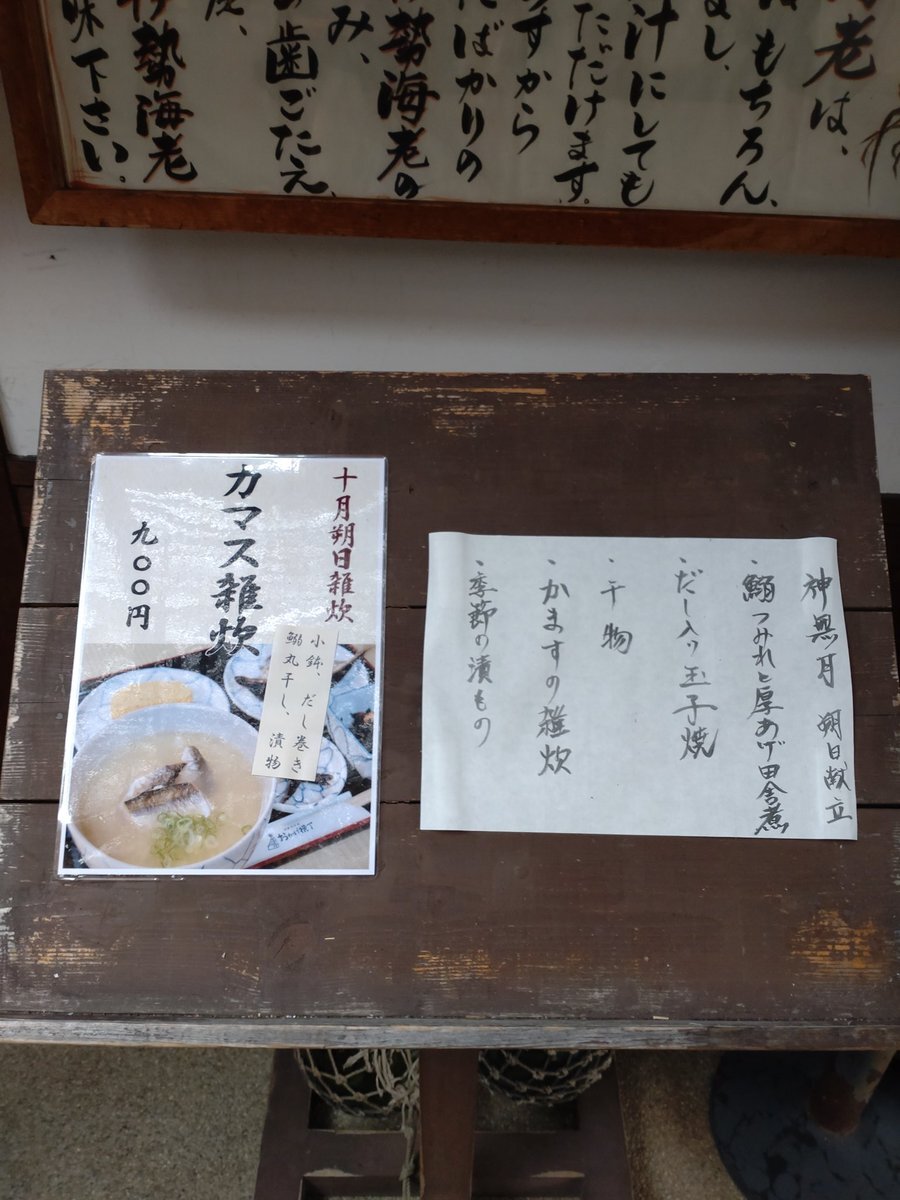 老は、
はもちろん、
まし、
汁にしても
ただけます
ますから
たばかりの
伊勢海老の
み、
の歯ごたえ、
伊勢海老
味下さい。
十月朔日雑炊
カマス雑炊
九〇〇円
小鉢、だし巻き
鰯丸干し、漬物
おかげ横丁
神無月 朔日献立
・鰯つみれと厚あげ田舎煮
・だし入り玉子焼
・干物
・かますの雑炊
・季節の漬もの